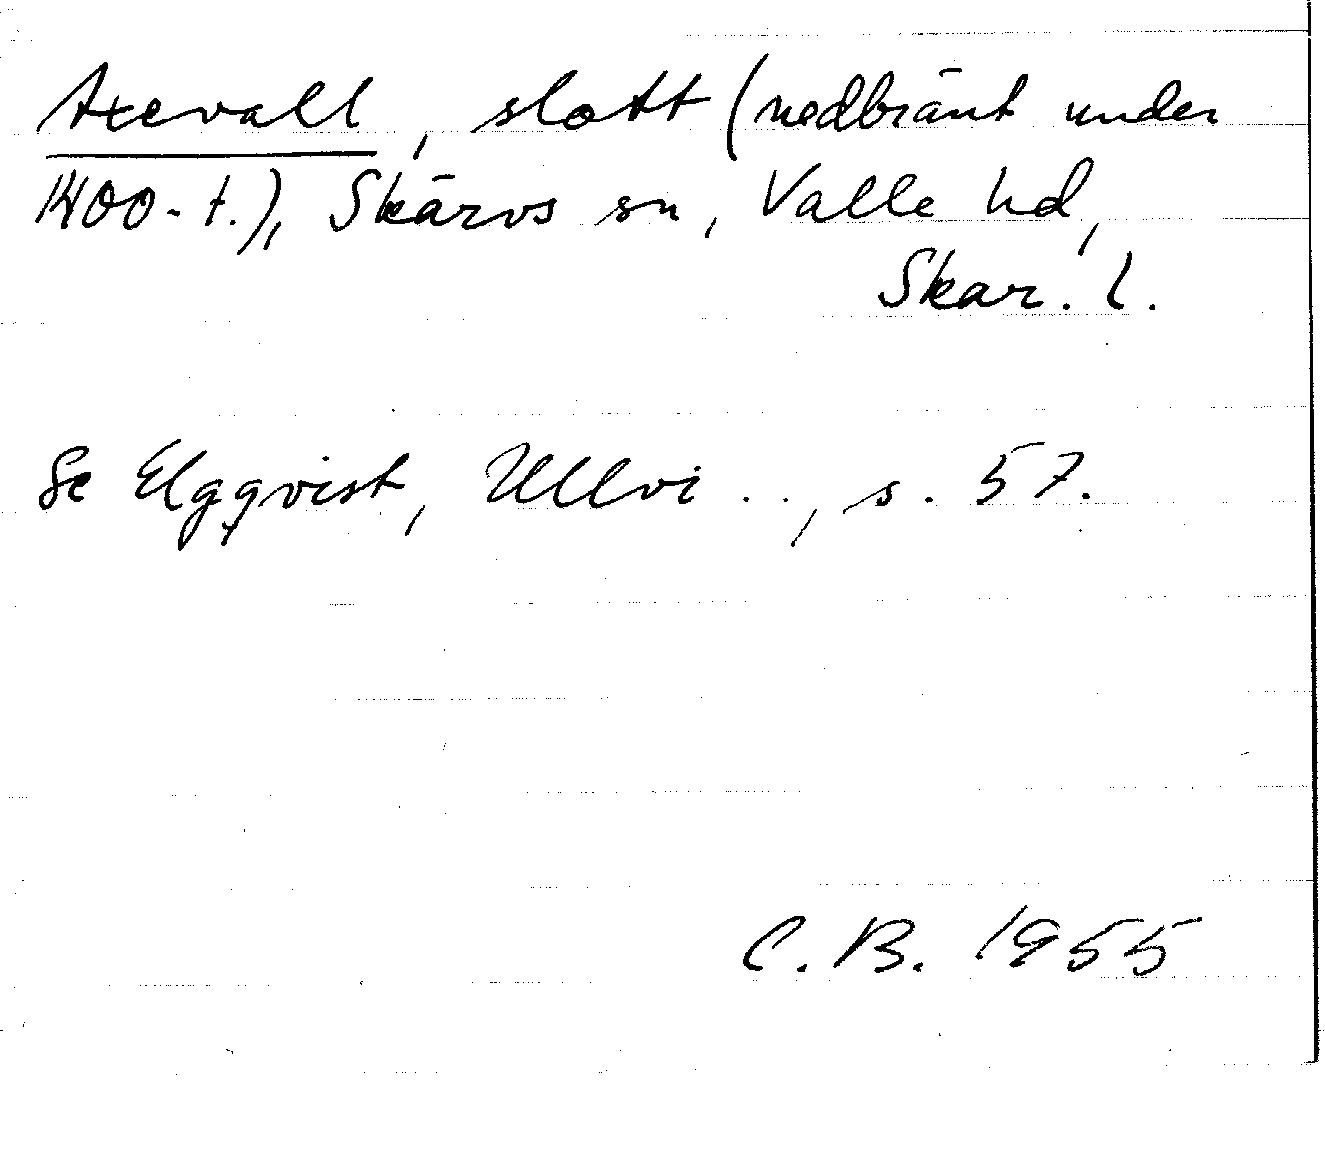 Axevall, slott (nedbränt under
1400-t.), Skärvs sn, Valle hd,
Skar. l.
Se Elgqvist, Ullvi .., s. 57.
C. B. 1955